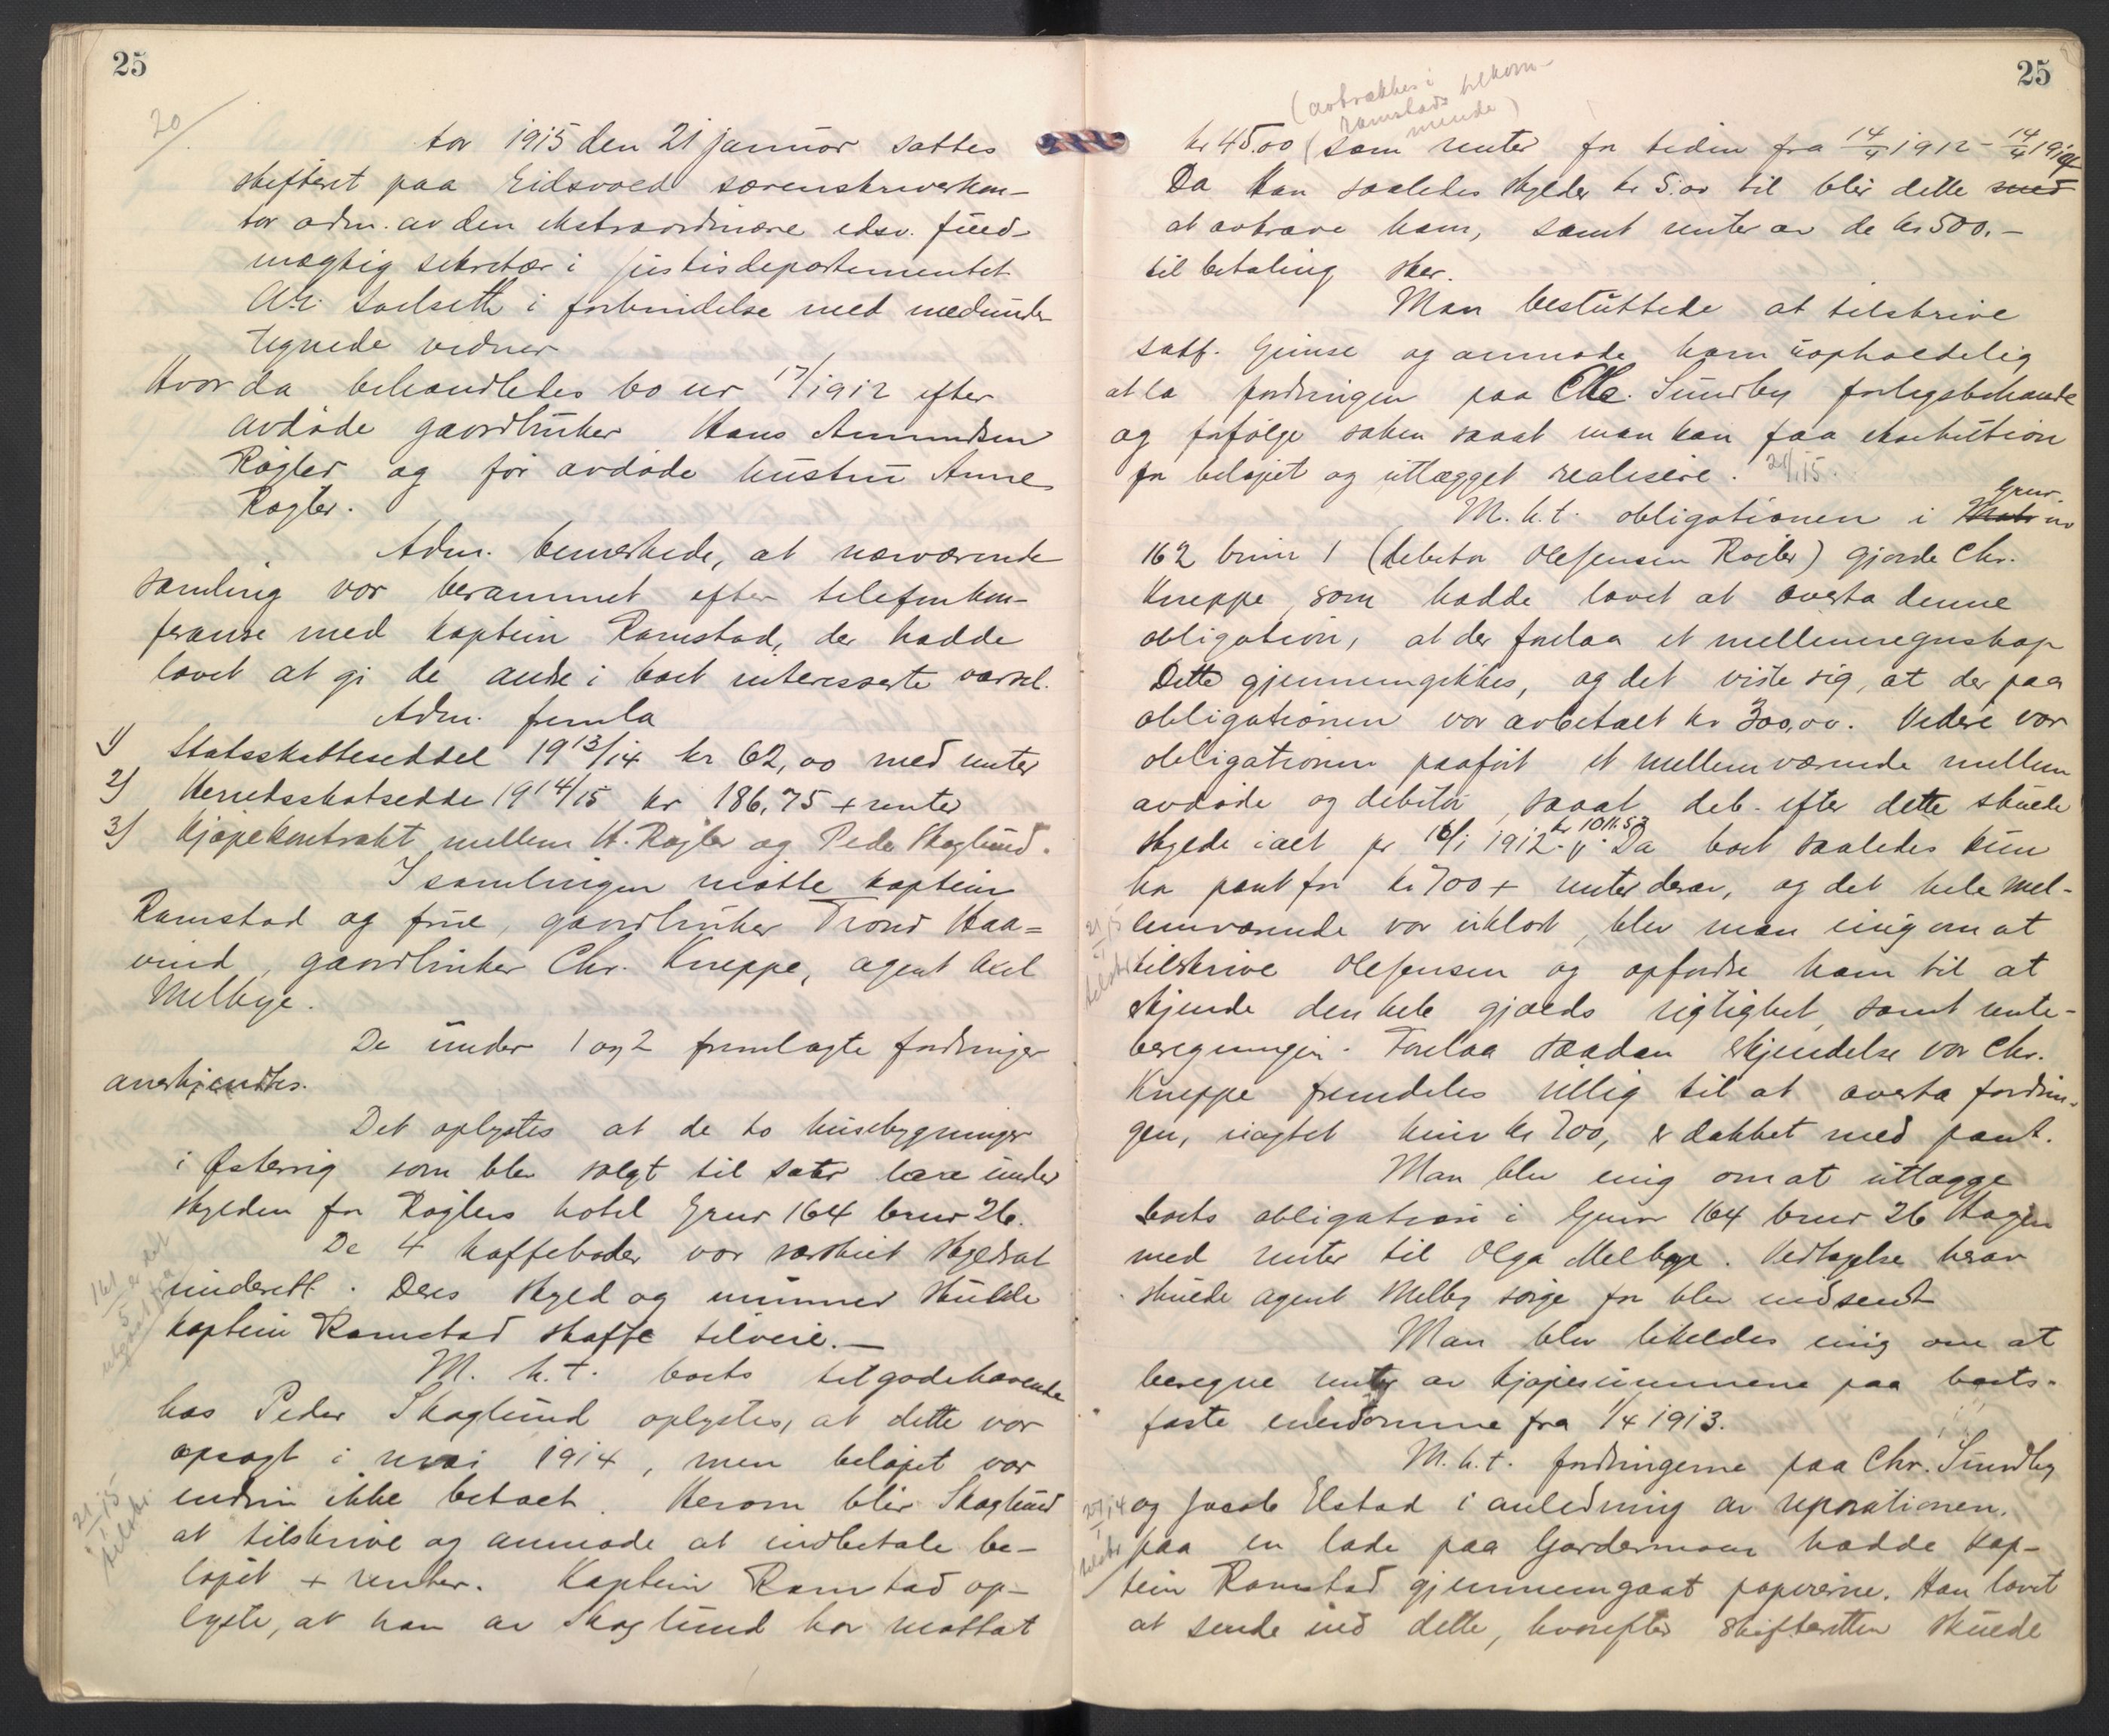 25
20/
Aar 1915 den 21 januar sattes
skifteret paa Eidsvold sorenskriverkon-
tor adm. av den ekstraordinære edsv. fuld-
mægtig sekretær i justisdepartementet
i forbindelse med medunder-
tegnede vidner
Hvor da behandledes bo nr 17/1912 efter
avdøde gaardbruker Hans Amundsen
Røgler og før avdøde hustru Anne
Røgler.
Adm. bemerkede, at nærværende
samling var berammet efter telefonkon-
feranse med kaptein Ramstad, der hadde
lovet at gi de andre i boet interesserte varsel.
Adm. fremla
1) Statsskatteseddel 1913/14 kr 62,00 med renter
2) Herredsskatsedde 1914/15 kr 186,75 + renter
3) Kjøpekontrakt mellem H. Røgler og Peder Skoglund.
I samlingen møtte kaptein
Ramstad og frue, gaardbruker Trond Haa=
vind, gaardbruker Chr. Kneppe, agent Axel
Melbye.
De under 1 og 2 fremlagte fordringer
anerkjendtes.
Det oplystes at de to husebygninger
i Østerrig som blev solgt til Sæter lære under
skylden for Røglers hotel Grnr 164 brnr 26.
De 4 kaffeboder var særskilt skyldsat
underett. Deres skyld og nummer skulde
kaptein Ramstad skaffe tilveie.—
M. h. t. boets tilgodehavende
hos Peder Skoglund oplystes, at dette var
opsagt i mai 1914, men beløpet var
endnu ikke betalt. Herom blir Skoglund
at tilskrive og anmode at indbetale be-
løpet + renter. Kaptein Ramstad op-
lyste, at han av Skoglund har mottat
161
5
21/1 15
tilskr.
25
(avtrækkes i
Ramstads tilkom-
mende)
kr 45.00 (som renter for tiden fra 14/4 1912 - 14/4 1914
Da han saaledes skylder kr 5.00 til blir dette med
at avkræve ham, samt renter av de kr 500.—
til betaling sker.
Man besluttede at tilskrive
sakf. Gimse og anmode ham uopholdelig
at la fordringen paa Chr. Sundby forligsbehandle
og forfølge saken saaat man kan faa eksekution
for beløpet og utlægget realisere. 21/1 15.
M. h. t. obligationen i Matr Grnr. nr
162 brnr 1 (debitor Ole Jensen Røgler) gjorde Chr.
Kneppe, som hadde lovet at overta denne
obligation, at der forelaa et mellemregnskap
Dette gjennemgikkes, og det viste sig, at der paa
obligationen var avbetalt kr 300,00. Videre var
obligationen paaført et mellemværende mellem
avdøde og debitor, saaat deb. efter dette skulde
skylde ialt pr 16/1 1912 kr 1011.53. Da boet saaledes kun
har pant for kr 700 + renter derav, og det hele mel-
lemværende var uklart, blev man enig om at
tilskrive Ole Jensen og opfordre ham til at
erkjende den hele gjælds rigtighet, samt rente-
beregningen. Forelaa saadan erkjendelse var Chr.
Kneppe fremdeles villig til at overta fordrin-
gen, uagtet kun kr 700, er dækket med pant.
Man blev enig om at utlægge
boets obligation i Grnr 164 brnr 26 Hagen
med renter til Olga Melbye. Vedtagelse herav
skulde agent Melby sørge for blev indsendt
Man blev likeledes enig om at
beregne renter av kjøpesummene paa boets
faste eiendomme fra 1/4 1913.
M. h. t. fordringerne paa Chr. Sundby
og Jacob Elstad i anledning av reparationen
paa en lade paa Gardermoen hadde kap-
tein Ramstad gjennemgaat papirerne. Han lovet
at sende ind dette, hvorefter skifteretten skulde
21/1 15
tilskr